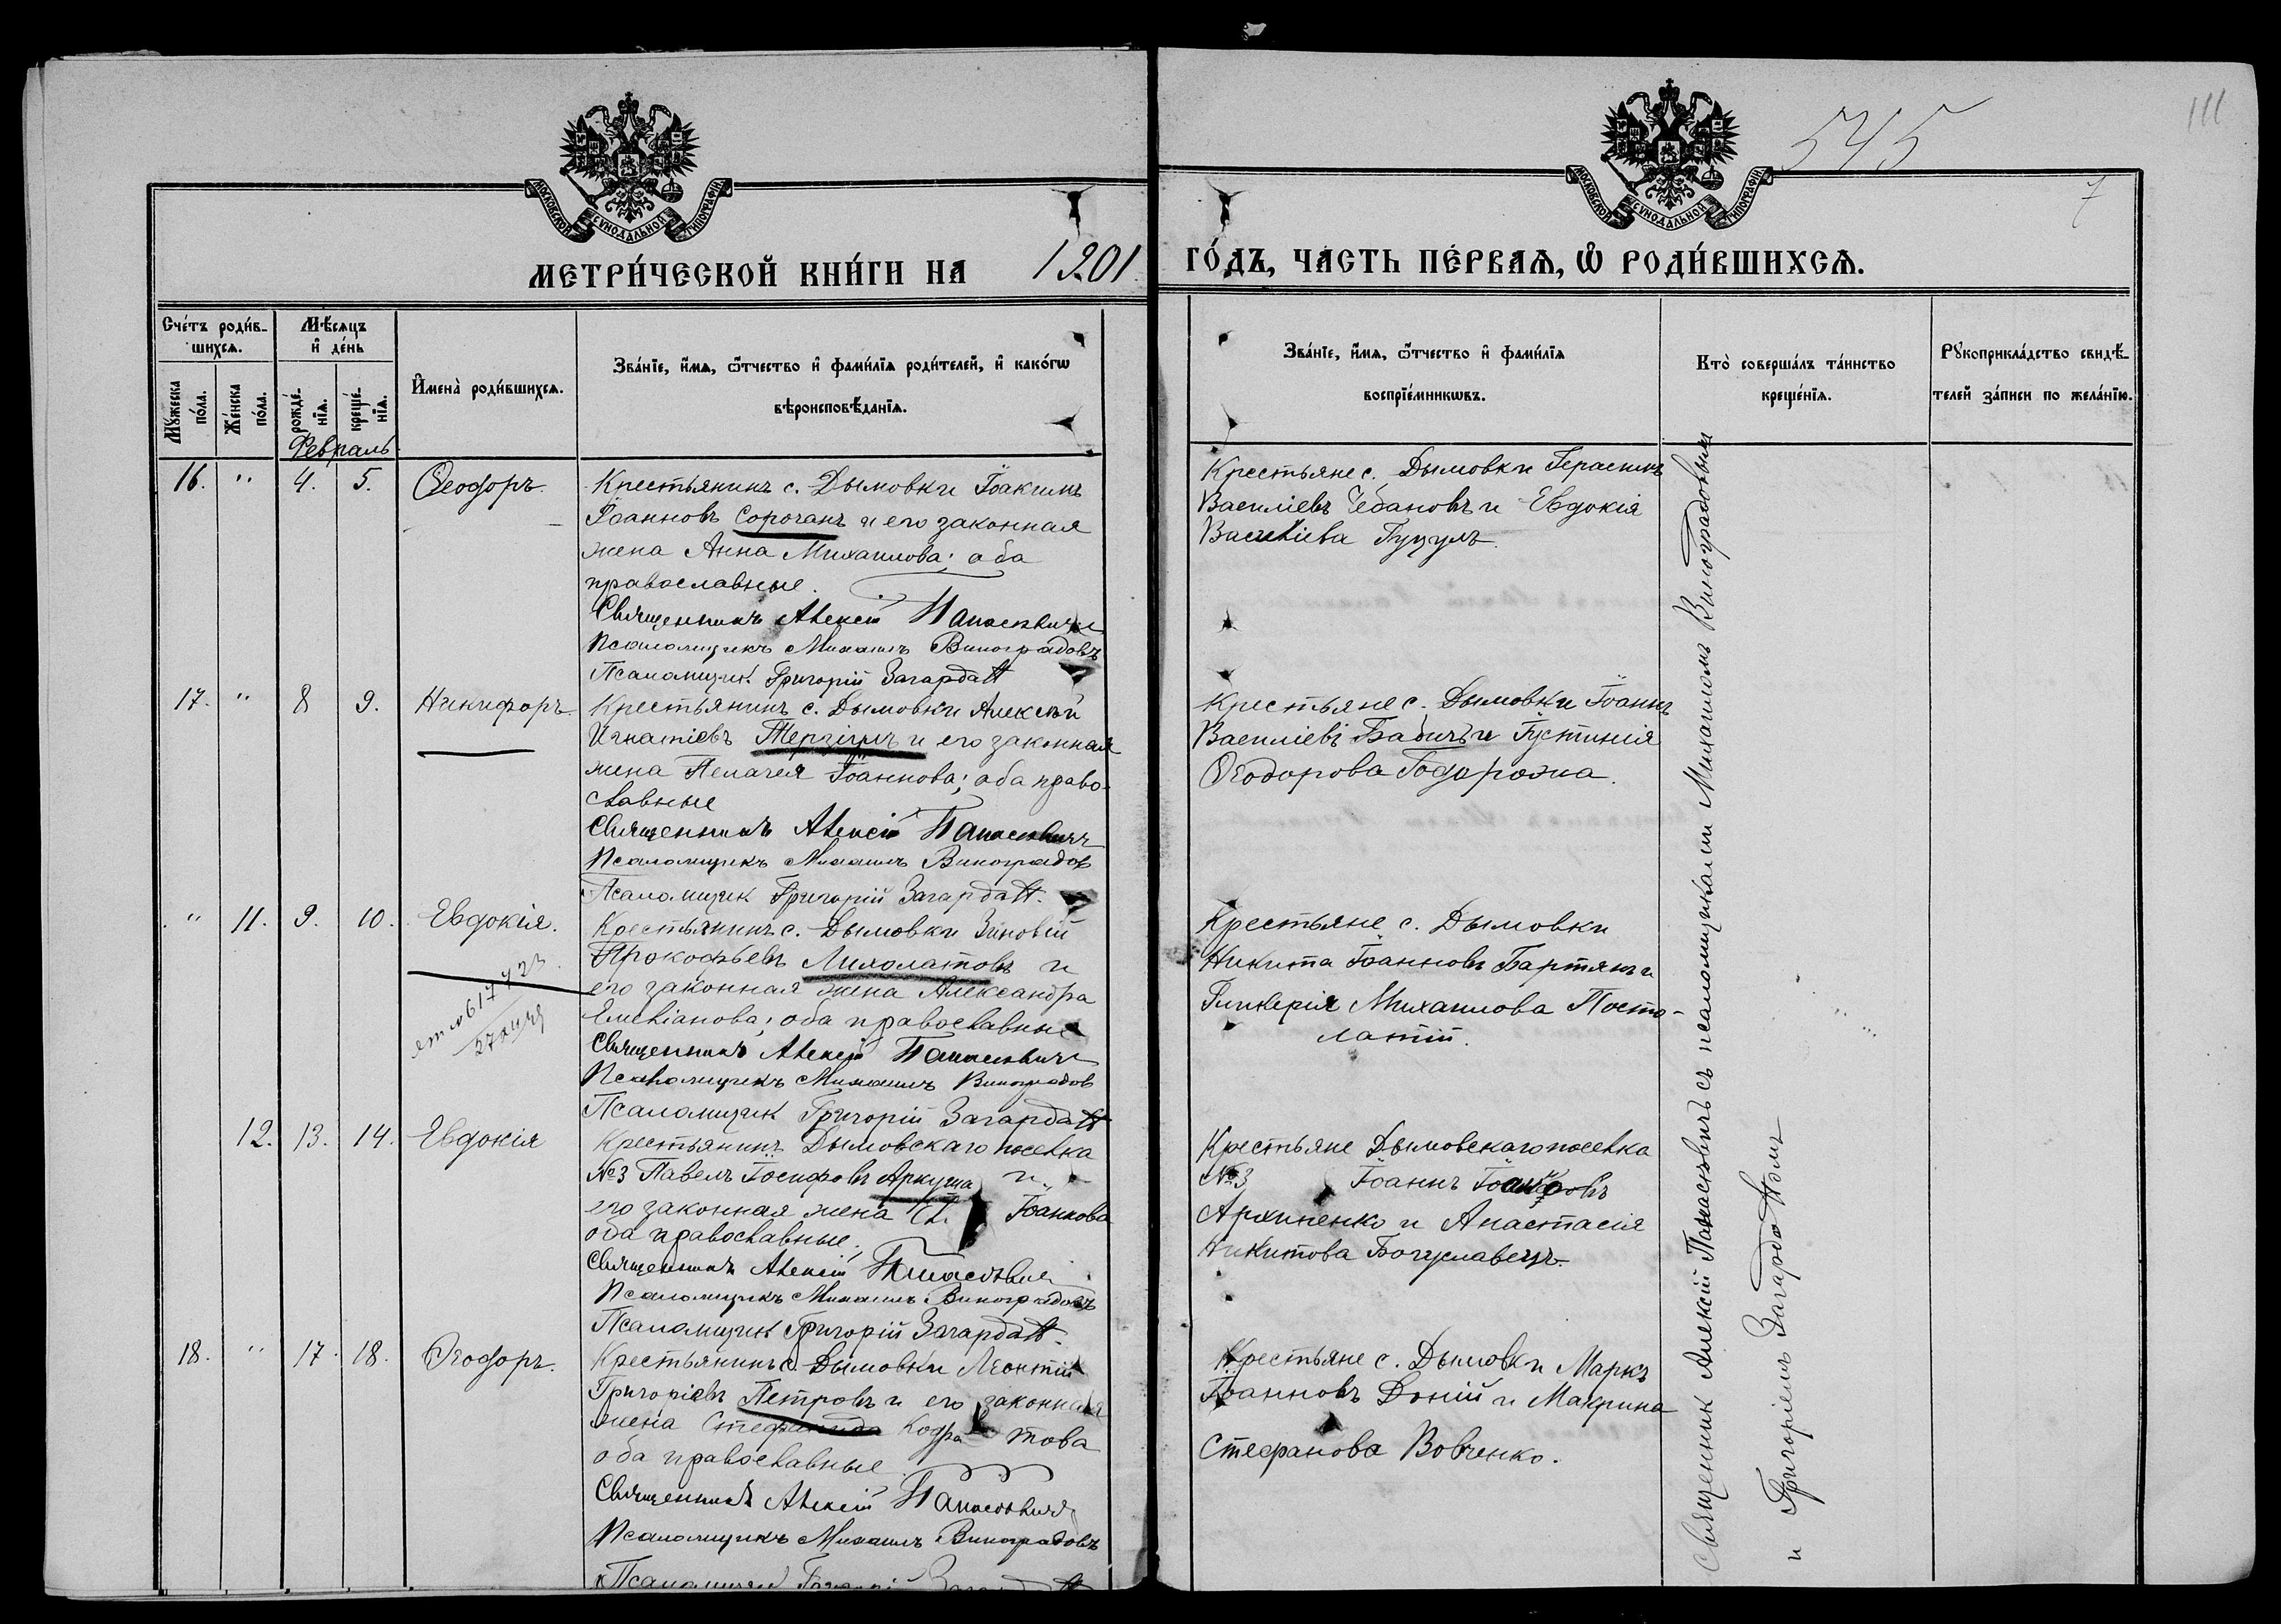 545
111
7
МОСКОВСКОЙ СѴНОДАЛЬНОЙ ТИПОГРАФІИ
МОСКОВСКОЙ СѴНОДАЛЬНОЙ ТИПОГРАФІИ
МЕТРИ́ЧЕСКОЙ КНИ́ГИ НА 1901
ГО́ДЪ, ЧА́СТЬ ПЕ́РВАѦ, Ѽ РОДИ́ВШИХСѦ.
Сче́тъ роди́в-
шихсѧ.
Мꙋ́жеска
по́ла.
Же́нска
по́ла.
Мѣ́сѧцъ
и҆ де́нь
рожде́-
нїѧ.
креще́-
нїѧ.
И҆мена̀ роди́вшихсѧ.
Зва́нїе, и҆́мѧ, ѻ҆́тчество и҆ фамі́лїѧ роди́телей, и҆ како́гѡ
вѣроисповѣ́данїѧ.
Зва́нїе, и҆́мѧ, ѻ҆́тчество и҆ фамі́лїѧ
воспрїе́мникѡвъ.
Кто̀ соверша́лъ та́инство
креще́нїѧ.
Рꙋкоприкла́дство свидѣ́-
телей за́писи по жела́нїю.
Февраль
16. " 4. 5. Ѳеодоръ.
Крестьянинъ с. Дымовки Іоакимъ
Іоанновъ Сорочанъ и его законная
жена Анна Михаилова; оба
православные.
Священникъ Алексій Панасевичъ
Псаломщикъ Михаилъ Виноградовъ
Псаломщик Григорій Загард
Крестьяне с. Дымовки Герасимъ
Василіевъ Чебановъ и Евдокія
Василіева Гуцулъ.
17. " 8 9. Никифоръ.
Крестьянинъ с. Дымовки Алексѣй
Игнатіевъ Терзи и его законная
жена Пелагея Іоаннова; оба право-
славные
Священникъ Алексій Панасевичъ
Псаломщикъ Михаилъ Виноградов
Псаломщик Григорій Загард
Крестьяне с. Дымовки Іоаннъ
Василіевъ Бабичъ и Іустинія
Ѳеодорова Тодорожа.
" 11. 9. 10. Евдокія.
617423
Крестьянинъ с. Дымовки Зиновій
Прокофьевъ Лихолатовъ и
его законная жена Александра
Емеліанова; оба православные
Священникъ Алексій Панасевичъ
Псаломщикъ Михаилъ Виноградов
Псаломщик Григорій Загард
Крестьяне с. Дымовки
Никита Іоанновъ Бартянъ и
Гликерія Михаилова Посто-
латій.
12. 13. 14. Евдокія
Крестьянинъ Дымовскаго поселка
№3 Павелъ Іосифовъ Аркуша и
его законная жена Іоаннова
оба православные;
Священникъ Алексій Панасевичъ
Псаломщикъ Михаилъ Виноградовъ
Псаломщик Григорій Загард
Крестьяне Дымовскаго поселка
№3 Іоаннъ
Архипенко и Анастасія
Никитова Богуславецъ.
18. " 17. 18. Ѳеодоръ.
Крестьянинъ с. Дымовки Леонтій
Григоріевъ Петровъ и его законная
жена Стефанида Кодратова
оба православные.
Священникъ Алексій Панасевичъ
Псаломщикъ Михаилъ Виноградовъ
Псаломщик
Крестьяне с. Дымовки Маркъ
Іоанновъ Доній и Макрина
Стефанова Вовченко.
Священник Алексій Панасевичъ съ псаломщиками Михаиломъ Виноградовымъ
и Григоріемъ